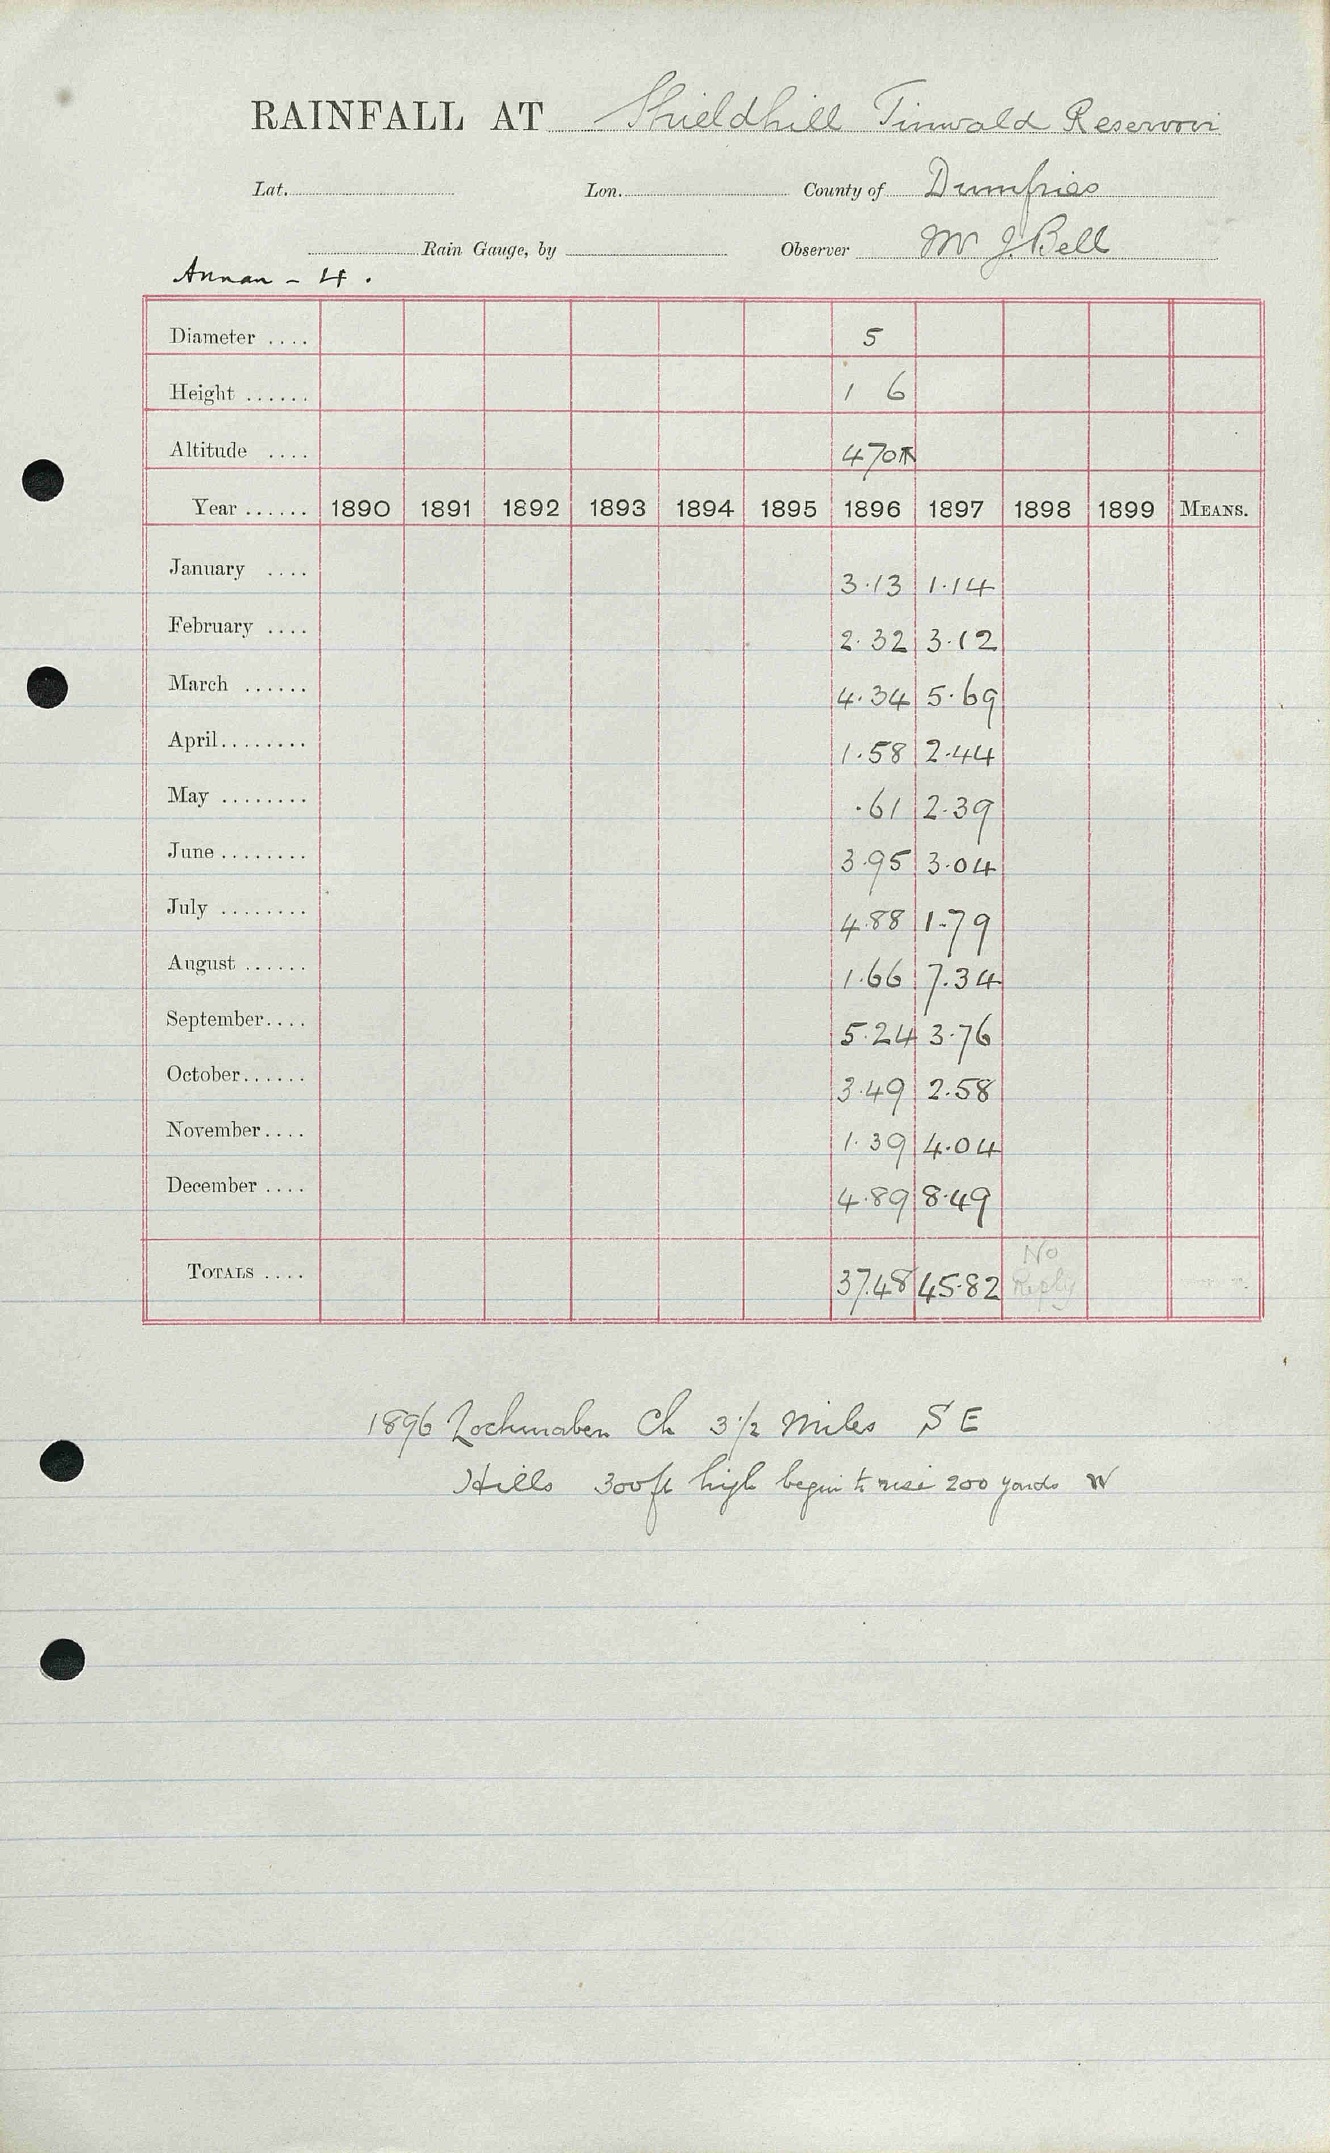 RAINFALL AT Shieldhill Tinwald Reservoir
Lat. Lon. County of Dumfries
Rain Gauge, by Observer Mr J. Bell
Annan - 4.
Diameter .... 5
Height ...... 1 6
Altitude .... 470
Year ...... 1890 1891 1892 1893 1894 1895 1896 1897 1898 1899 MEANS.
January .... 3.13 1.14
February .... 2.32 3.12
March ...... 4.34 5.69
April ........ 1.58 2.44
May ........ .61 2.39
June ........ 3.95 3.04
July ........ 4.88 1.79
August ...... 1.66 7.34
September .... 5.24 3.76
October ...... 3.49 2.58
November .... 1.39 4.04
December .... 4.89 8.49
TOTALS .... 37.48 45.82 No Reply
1896 Lochmaben Ch 3 1/2 Miles S E
Hills 300 ft high begin to rise 200 yards W